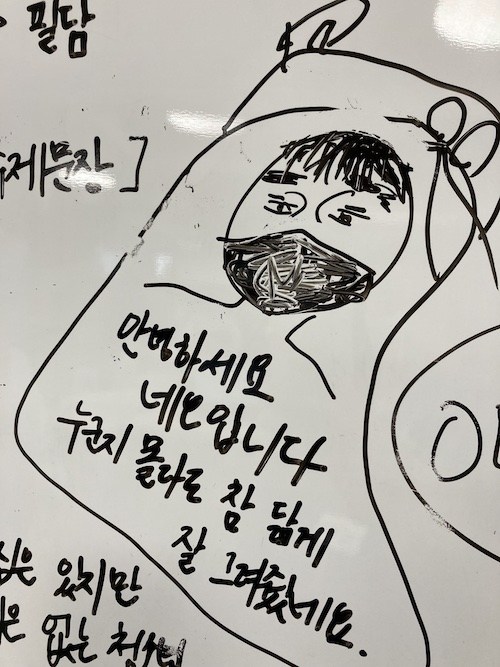 필담
제문장]
안녕하세요
네오입니다
누군지 몰라도 참 닮게
잘 그려줬네요.
싶은 있지만
없는 청소년